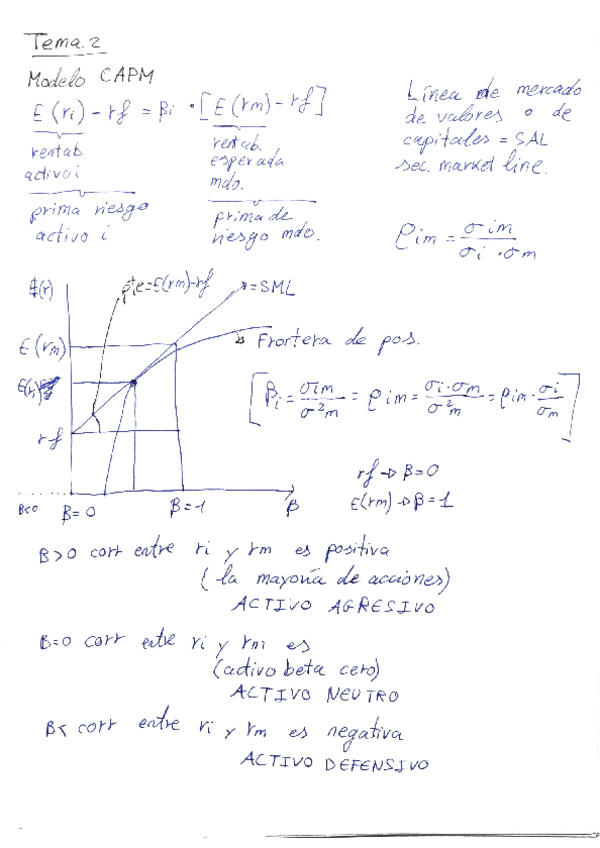 Tema.2
Modelo CAPM
E(ri) - rf = βi · [E(rm) - rf]
rentab. activo i
rentab. esperada mdo.
prima riesgo activo i
prima de riesgo mdo.
Línea de mercado
de valores o de
capitales = SAL
sec. market line.
ρim = σim / σi · σm
E(r)
pte=E(rm)-rf
=SML
E(rm)
Frontera de pos.
[βi = σim / σ²m = ρim = σi·σm / σ²m = ρim · σi / σm]
rf
rf → β=0
E(rm) → β=1
B<0
B=0
B=1
B
B>0 corr entre ri y rm es positiva
(la mayoría de acciones)
ACTIVO AGRESIVO
B=0 corr entre ri y rm es
(activo beta cero)
ACTIVO NEUTRO
B< corr entre ri y rm es negativa
ACTIVO DEFENSIVO